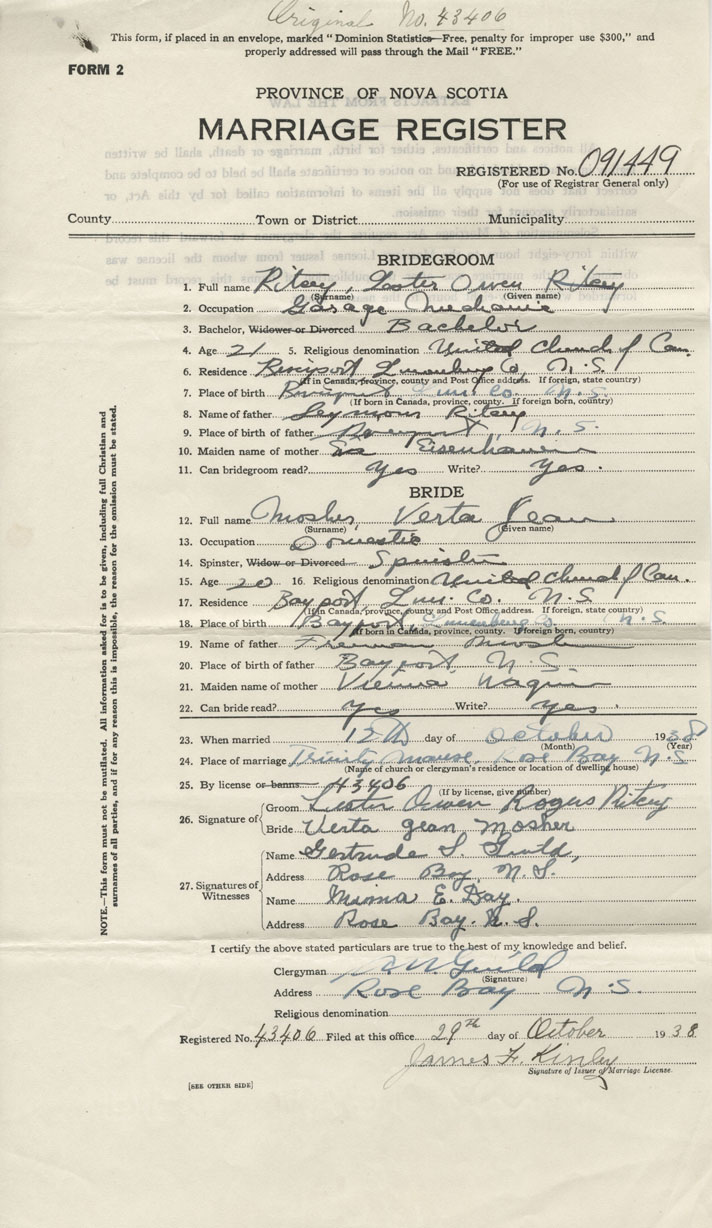 Original No. 43406
This form, if placed in an envelope, marked "Dominion Statistics—Free, penalty for improper use $300," and
properly addressed will pass through the Mail "FREE."
FORM 2
PROVINCE OF NOVA SCOTIA
MARRIAGE REGISTER
REGISTERED No. 091449
(For use of Registrar General only)
County Town or District Municipality
BRIDEGROOM
1. Full name Ritcey, Lester Owen Ritcey
(Surname) (Given name)
2. Occupation Garage Mechanic
3. Bachelor, Widower or Divorced Bachelor
4. Age 21 5. Religious denomination United Church of Can.
6. Residence Riverport Lunenburg Co, N.S.
(If in Canada, province, county and Post Office address. If foreign, state country)
7. Place of birth Riverport Lun. Co. N.S.
(If born in Canada, province, county. If foreign born, country)
8. Name of father Seymour Ritcey
9. Place of birth of father Riverport, N.S.
10. Maiden name of mother Eisenhauer
11. Can bridegroom read? Yes Write? Yes.
BRIDE
12. Full name Mosher, Verta Jean
(Surname) (Given name)
13. Occupation Domestic
14. Spinster, Widow or Divorced Spinster
15. Age 20 16. Religious denomination United Church of Can.
17. Residence Bayport, Lun. Co. N.S
(If in Canada, province, county and Post Office address. If foreign, state country)
18. Place of birth Bayport, Lunenburg N.S
(If born in Canada, province, county. If foreign born, country)
19. Name of father Freeman Mosher
20. Place of birth of father Bayport, N.S.
21. Maiden name of mother Vienna Wagner
22. Can bride read? Yes Write? Yes.
23. When married 12th day of October 1938
(Month) (Year)
24. Place of marriage Trinity Manse, Rose Bay N.S
(Name of church or clergyman's residence or location of dwelling house)
25. By license or banns 43406
(If by license, give number)
26. Signature of
Groom Lester Owen Rogers Ritcey
Bride Verta Jean Mosher
27. Signatures of Witnesses
Name Gertrude S. Guild,
Address Rose Bay, N.S.
Name Minna E. Day.
Address Rose Bay. N.S.
I certify the above stated particulars are true to the best of my knowledge and belief.
Clergyman Guild
(Signature)
Address Rose Bay N.S.
Religious denomination
Registered No. 43406 Filed at this office 29th day of October 1938
James F. Kinley
Signature of Issuer of Marriage License.
[SEE OTHER SIDE]
NOTE.—This form must not be mutilated. All information asked for is to be given, including full Christian and
surnames of all parties, and if for any reason this is impossible, the reason for the omission must be stated.